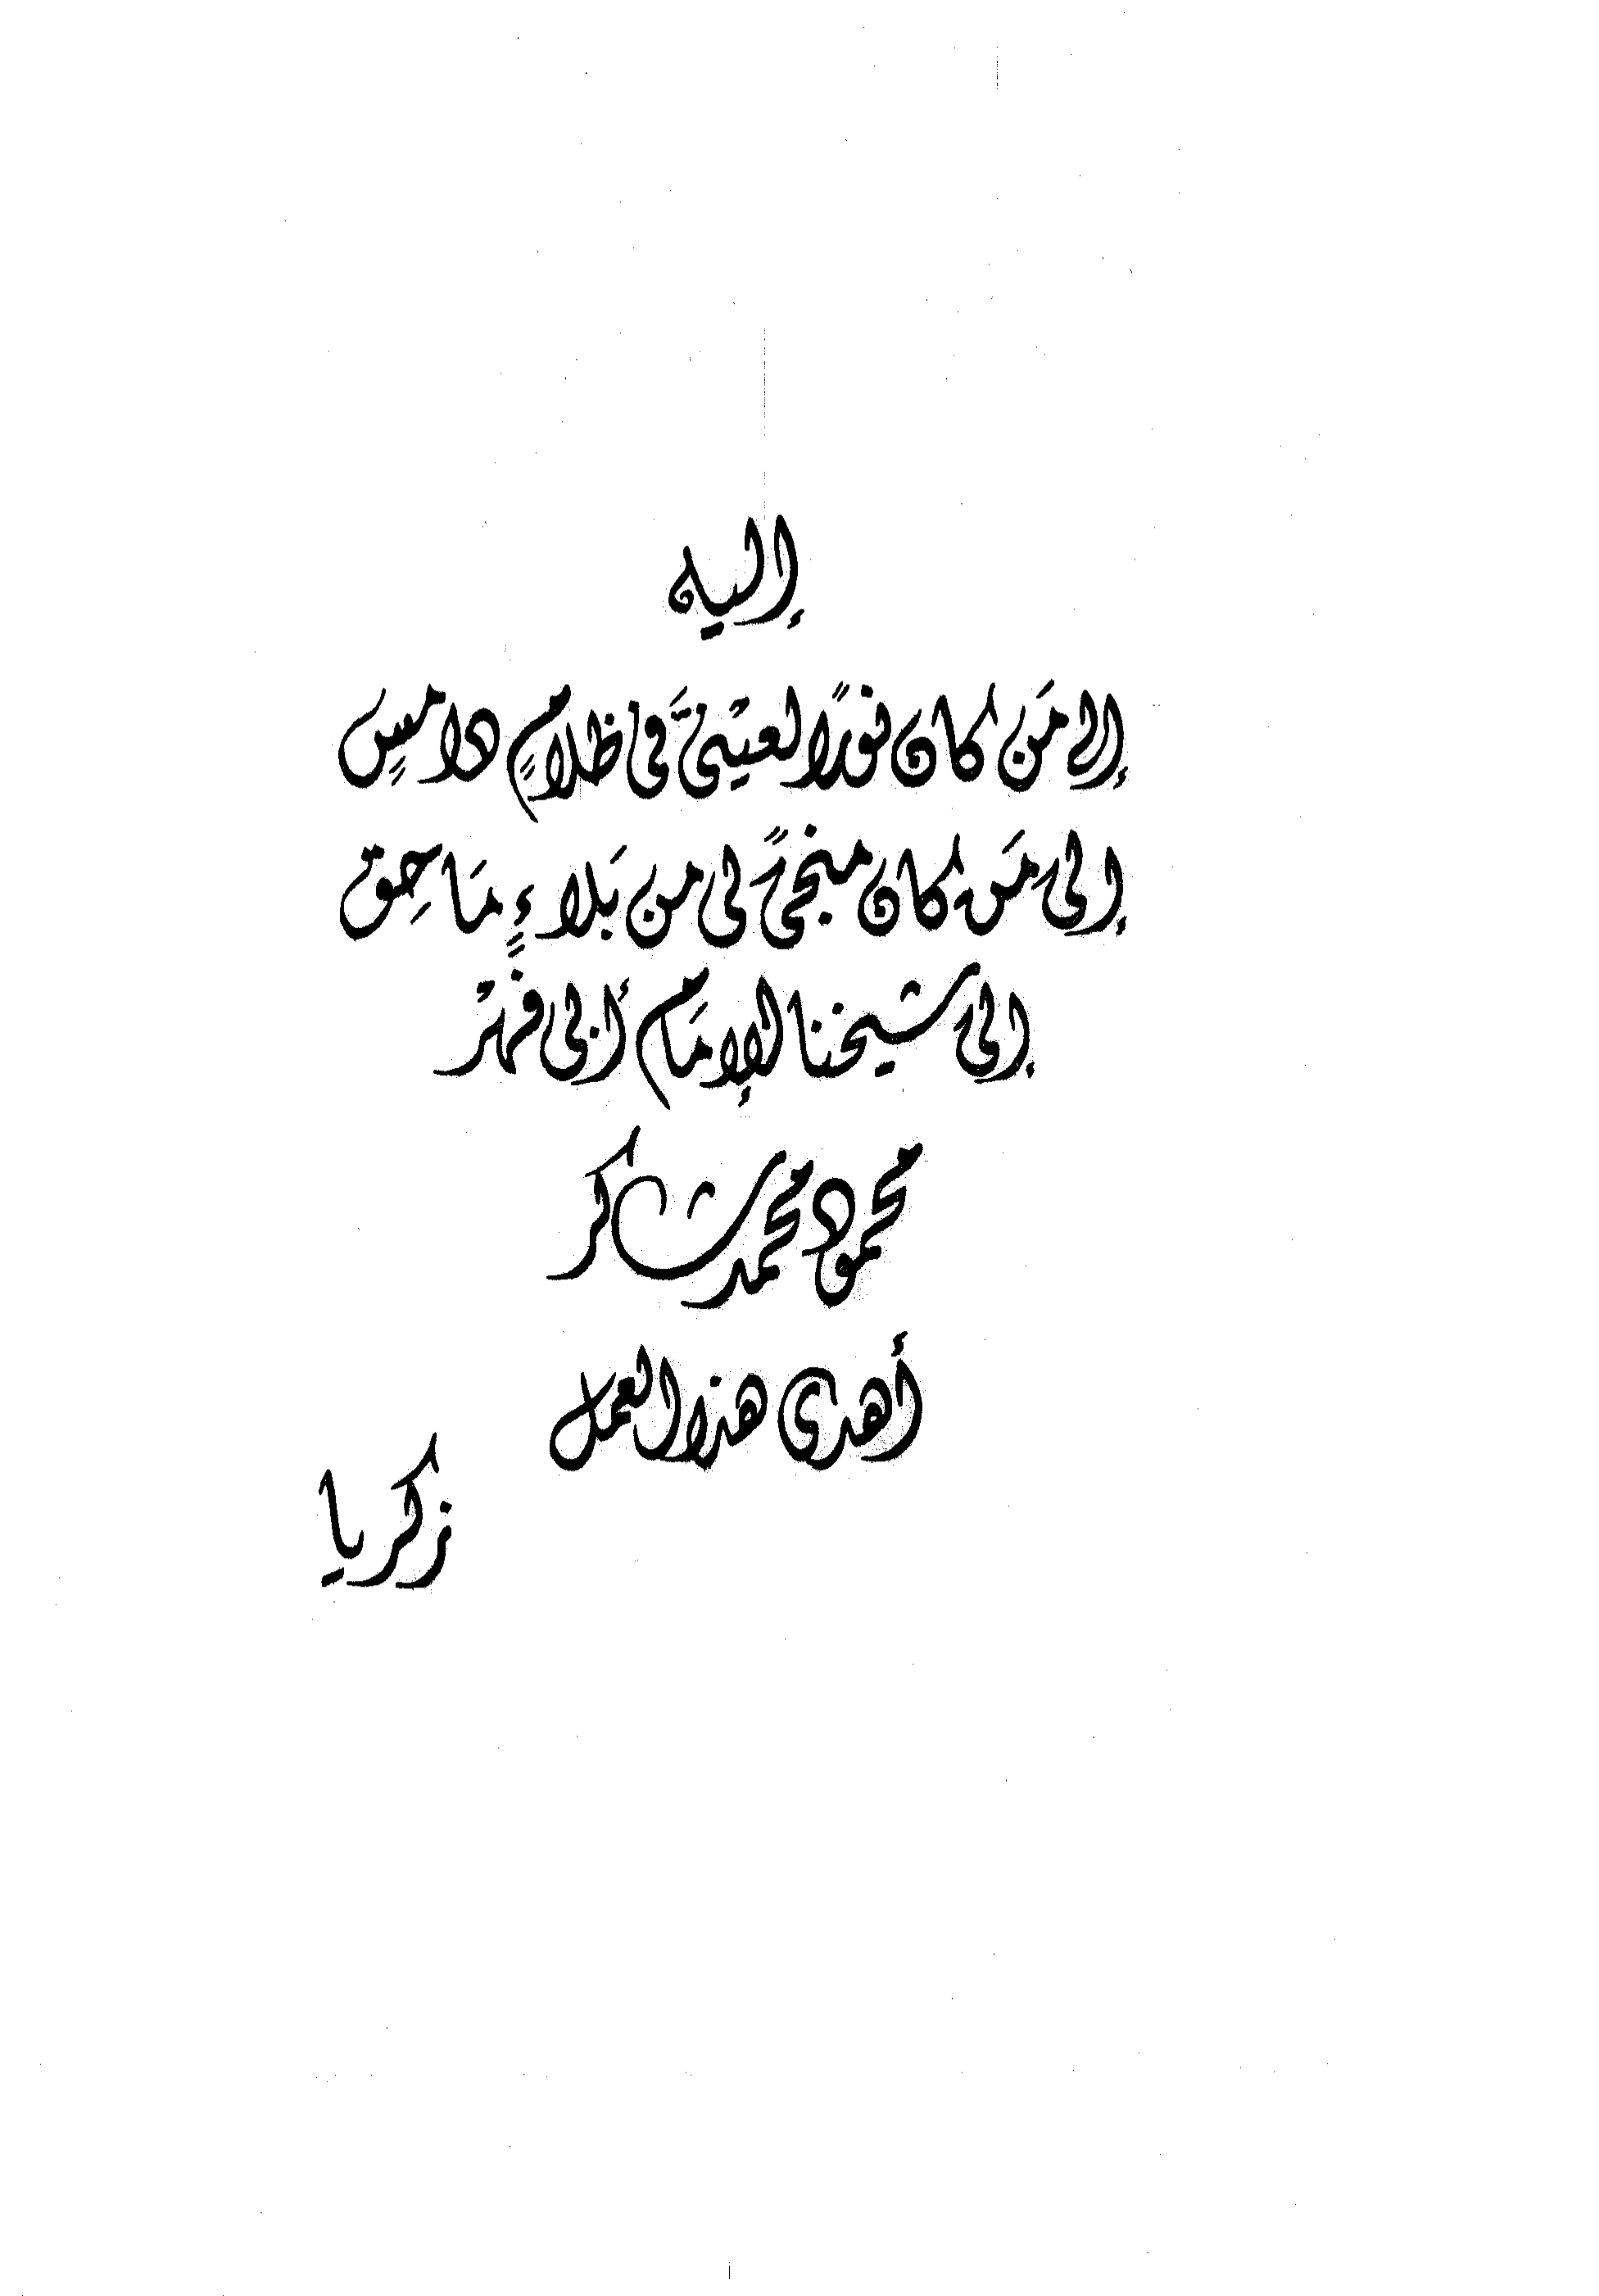 إليه
إلى مَن كان نورًا لعينىَّ فى ظلامٍ دامسٍ
إلى مَن كان منجىً لى من بَلاءٍ مَاحِق
إلى شيخنا الإمَام أبى فِهْر
محمود محمد شاكر
أهدى هذا العمل
زكريا